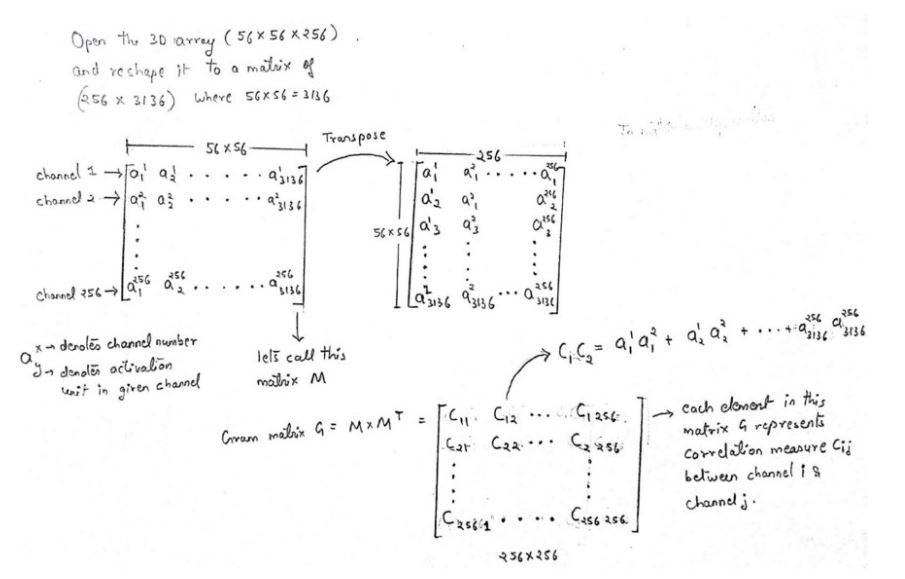 Open the 3D array (56×56×256)
and reshape it to a matrix of
(256 × 3136) where 56×56 = 3136
Transpose
56×56
channel 1 → a₁¹ a₂¹ . . . . . a¹₃₁₃₆
channel 2 → a₁² a₂² . . . . a²₃₁₃₆
channel 256 → a₁²⁵⁶ a₂²⁵⁶ . . . . . . a²⁵⁶₃₁₃₆
256
56×56
a₁¹ a₁² . . . . . a₁²⁵⁶
a₂¹ a₁² a₂²⁵⁶
a₃¹ a₃² a₃²⁵⁶
a²₃₁₃₆ a²₃₁₃₆ ... a²⁵⁶₃₁₃₆
a x → denotes channel number
y → denotes activation
unit in given channel
lets call this
matrix M
→ C₁C₂ = a₁¹a₁² + a₂¹a₂² + ... + a²⁵⁶₃₁₃₆ a²⁵⁶₃₁₃₆
Gram matrix G = M×Mᵀ =
C₁₁ C₁₂ ... C₁ ₂₅₆
C₂₁ C₂₂ ... C₂ ₂₅₆
C₂₅₆₁ . . . . C₂₅₆ ₂₅₆
256×256
→ each element in this
matrix G represents
correlation measure Cij
between channel i &
channel j.